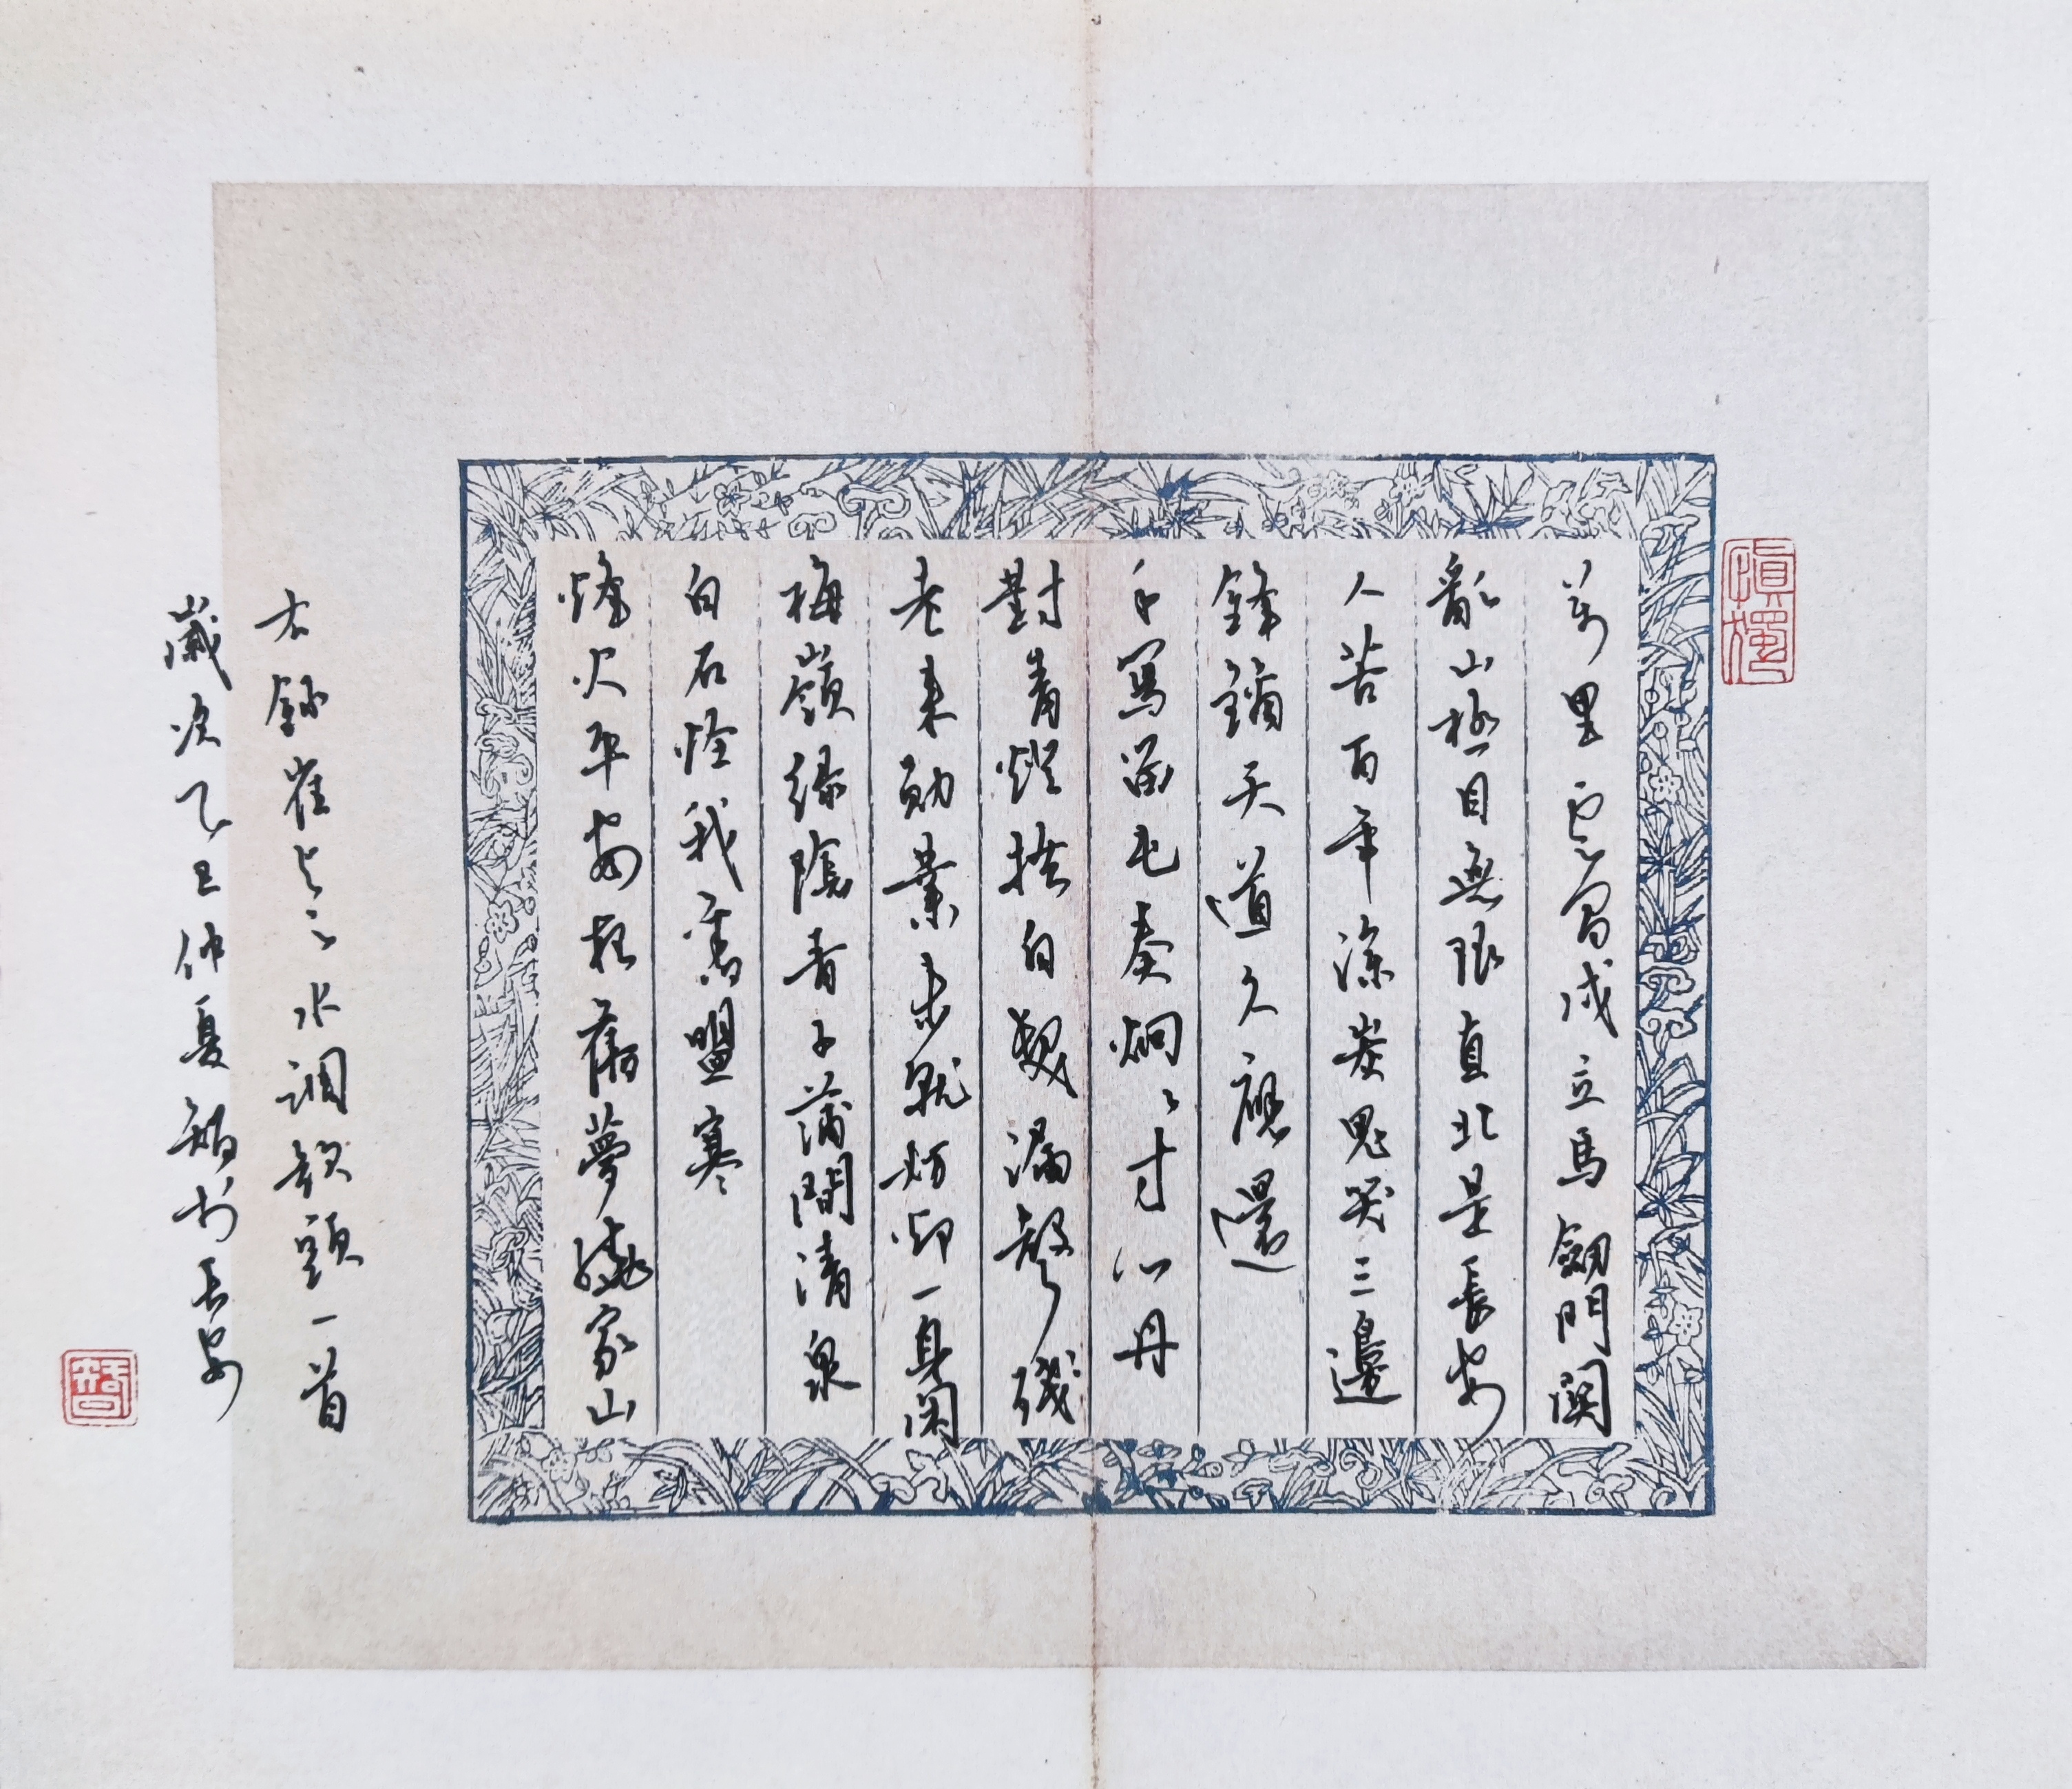 萬里雲間戍立馬劍門関
亂山極目無限直北是長安
人苦百年塗炭鬼哭三邊
鋒鏑天道久應還
手寫留屯奏炯炯寸心丹
對青燈搔白髮漏聲殘
老來勛業未就妨卻一身閑
梅嶺緑陰青子蒲間清泉
白石怪我舊盟寒
烽火平安夜歸夢繞家山
右鈔崔与之水調歌頭一首
歲次乙巳仲夏智書長安
慎獨
智